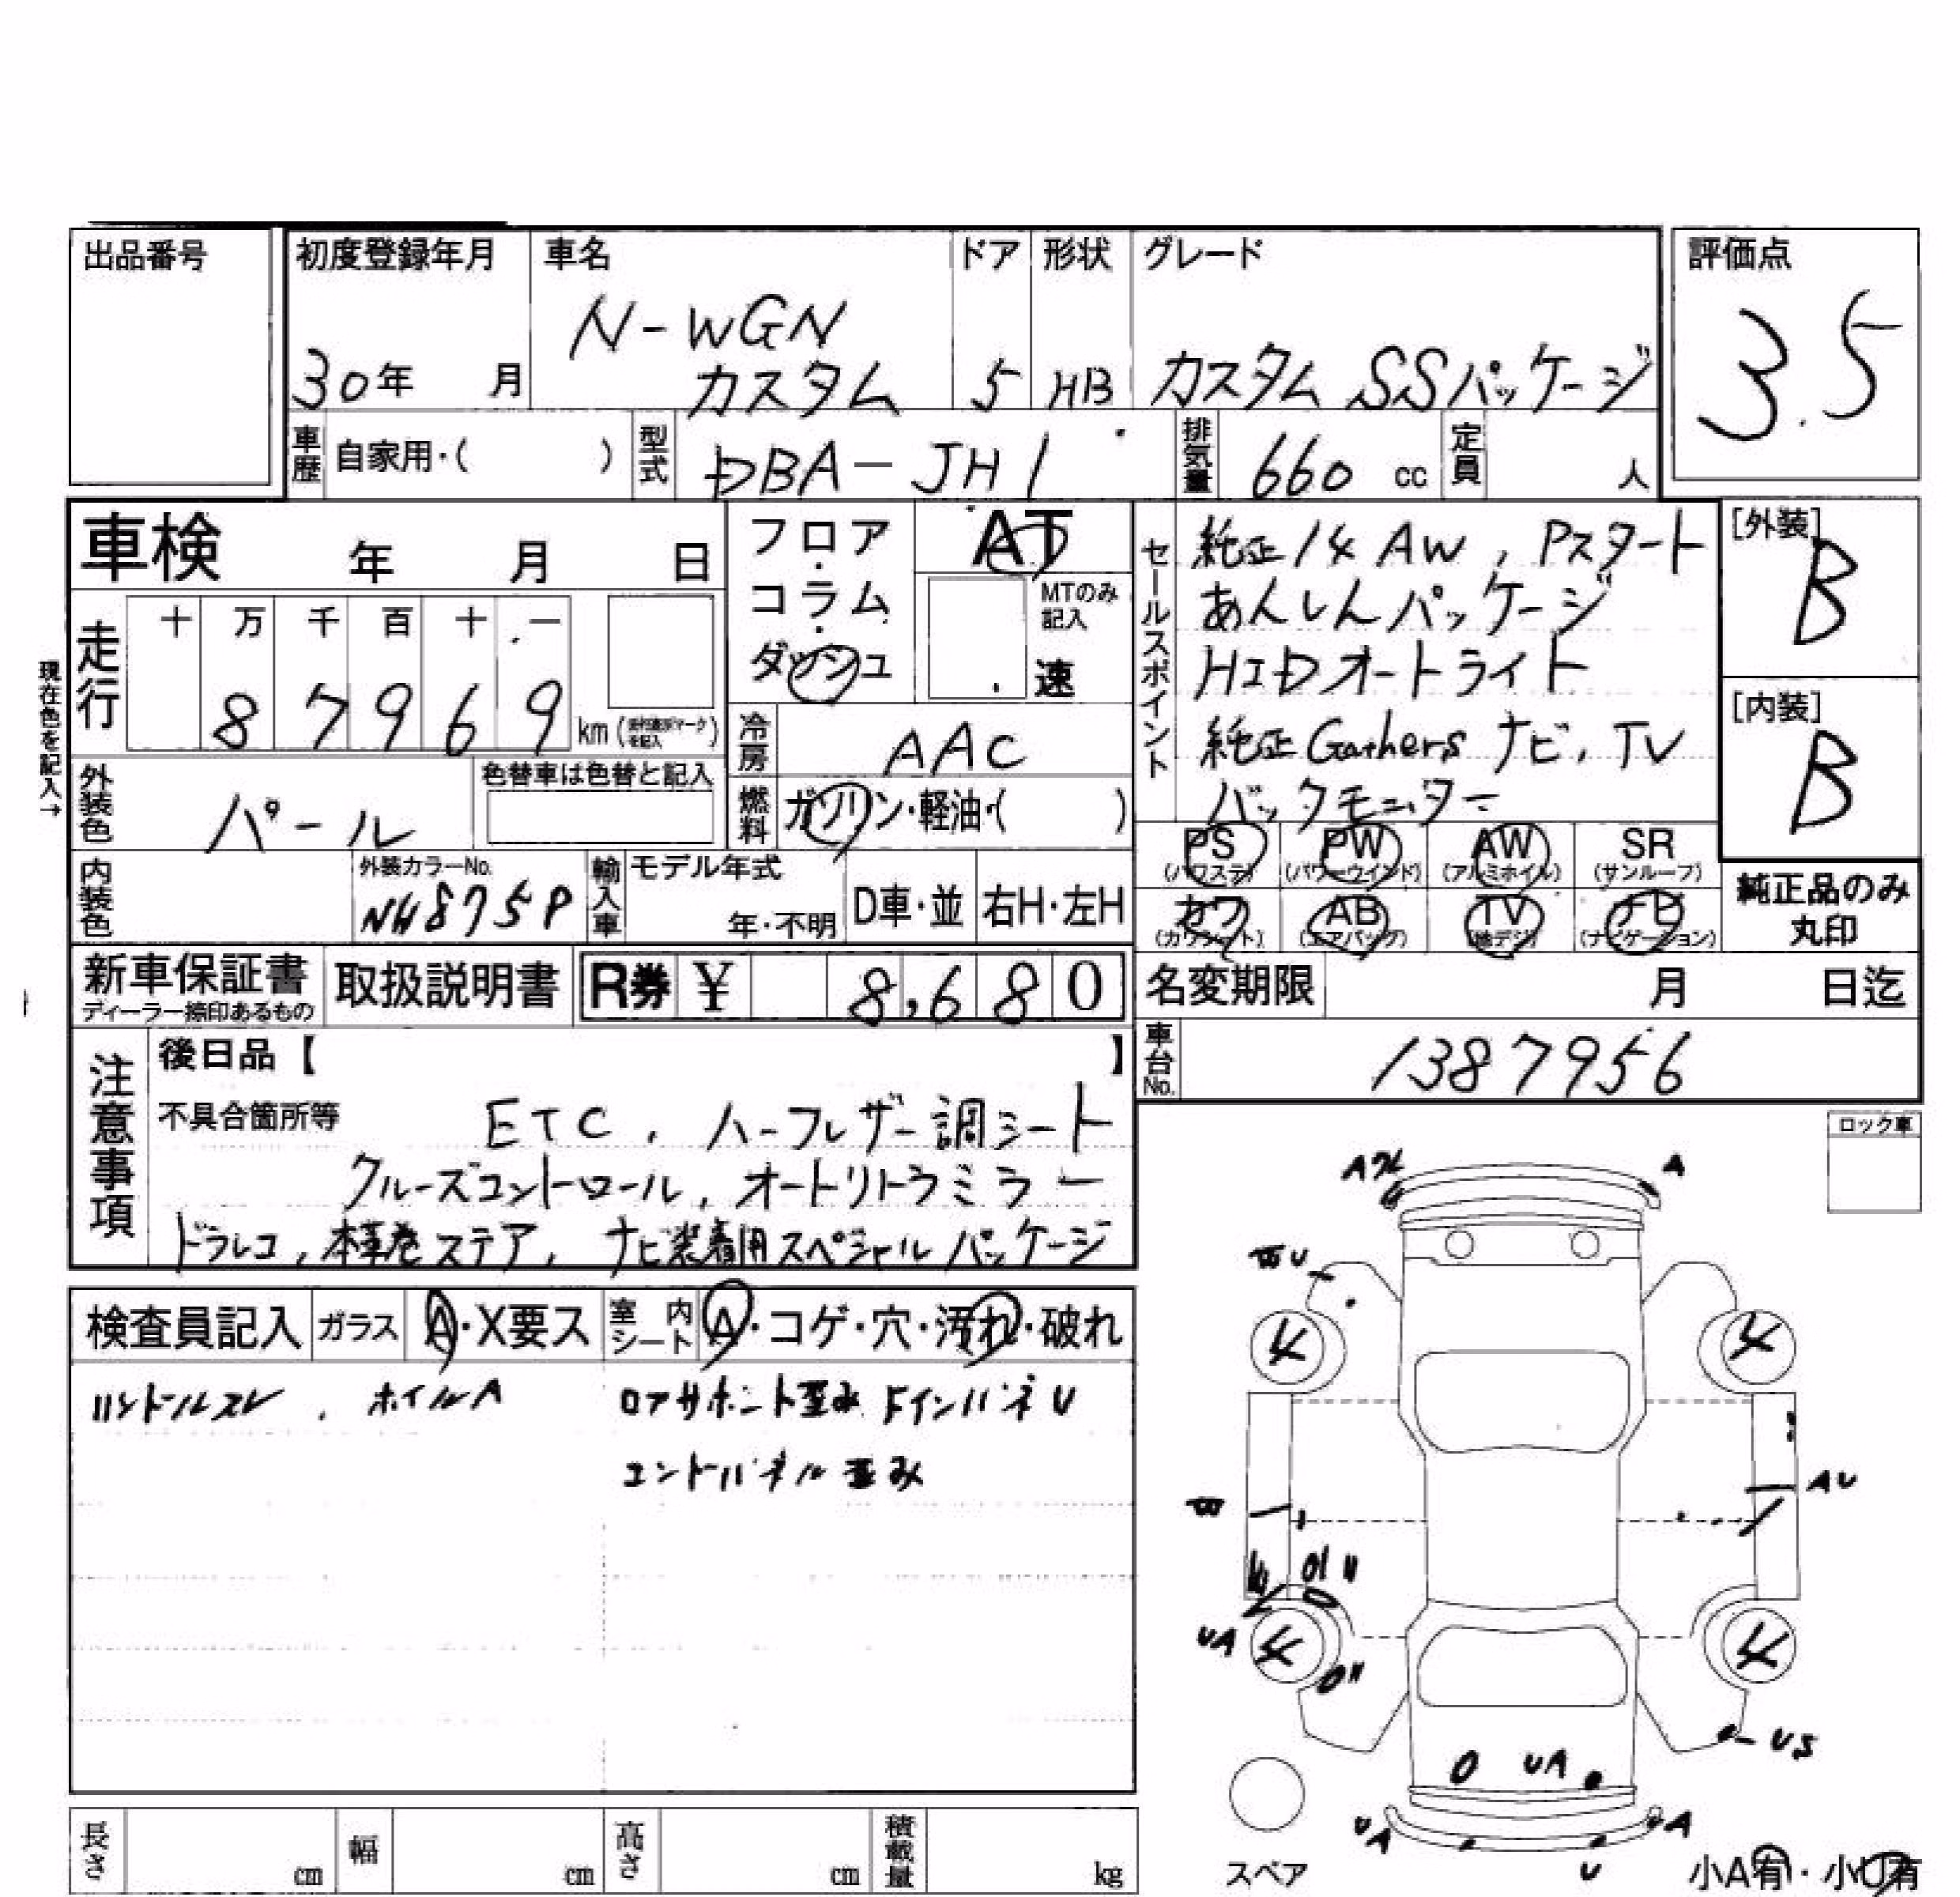 出品番号
初度登録年月 車名 ドア 形状 グレード 評価点
N-WGN
30年 月 カスタム 5 HB カスタム SSパッケージ 3.5
車歴 自家用・( ) 型式 DBA-JH1 排気量 660 cc 定員 人
車検 年 月 日
フロア・コラム・ダッシュ
AT
MTのみ記入
速
セールスポイント
純正14AW, Pスタート
あんしんパッケージ
HIDオートライト
純正Gathersナビ,TV
バックモニター
[外装] B
[内装] B
現在色を記入→
走行 十 万 千 百 十 一
8 7 9 6 9 km
冷房 AAC
外装色 パール 色替車は色替と記入
燃料 ガソリン・軽油・( )
内装色 外装カラーNo. NH875P
輸入車 モデル年式 年・不明 D車・並 右H・左H
PS (パワステ) PW (パワーウインド) AW (アルミホイル) SR (サンルーフ)
カワ (カワシート) AB (エアバッグ) TV (地デジ) ナビ (ナビゲーション)
純正品のみ
丸印
新車保証書 ディーラー捺印あるもの 取扱説明書 R券 ¥ 8,680
名変期限 月 日迄
車台No. 1387956
注意事項
後日品【 】
不具合箇所等 ETC, ハーフレザー調シート
クルーズコントロール, オートリトラミラー
ドラレコ, 本革巻ステア, ナビ装着用スペシャルパッケージ
ロック車
検査員記入 ガラス A・X要ス 室内シート A・コゲ・穴・汚れ・破れ
ハンドルスレ, ホイルA ロアサポート歪み ドインパネU
エンドパネル歪み
A A
U
4 4
AU
UA 4 4
US
UA
UA A
U
スペア
小A有・小U有
長さ cm 幅 cm 高さ cm 積載量 kg